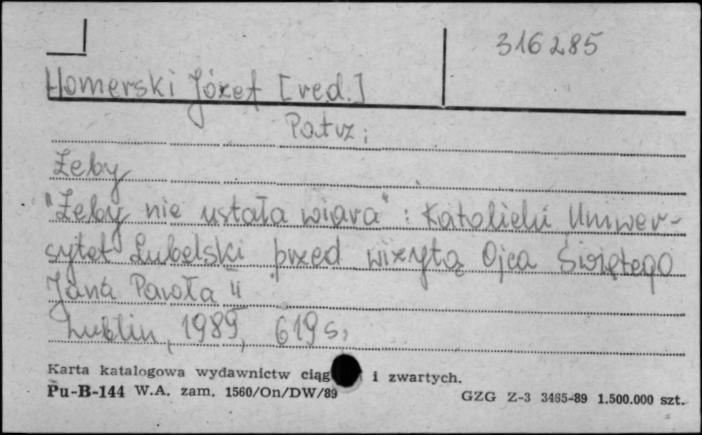 316285
Homerski Józef [red.]
Patrz:
Żeby
"Żeby nie ustała wiara" : Katolicki Uniwer-
sytet Lubelski przed wizytą Ojca Świętego
Jana Pawła II
Lublin, 1989, 619 s,
Karta katalogowa wydawnictw ciąg i zwartych.
Pu-B-144 W.A. zam. 1560/On/DW/89 GZG Z-3 3465-89 1.500.000 szt.